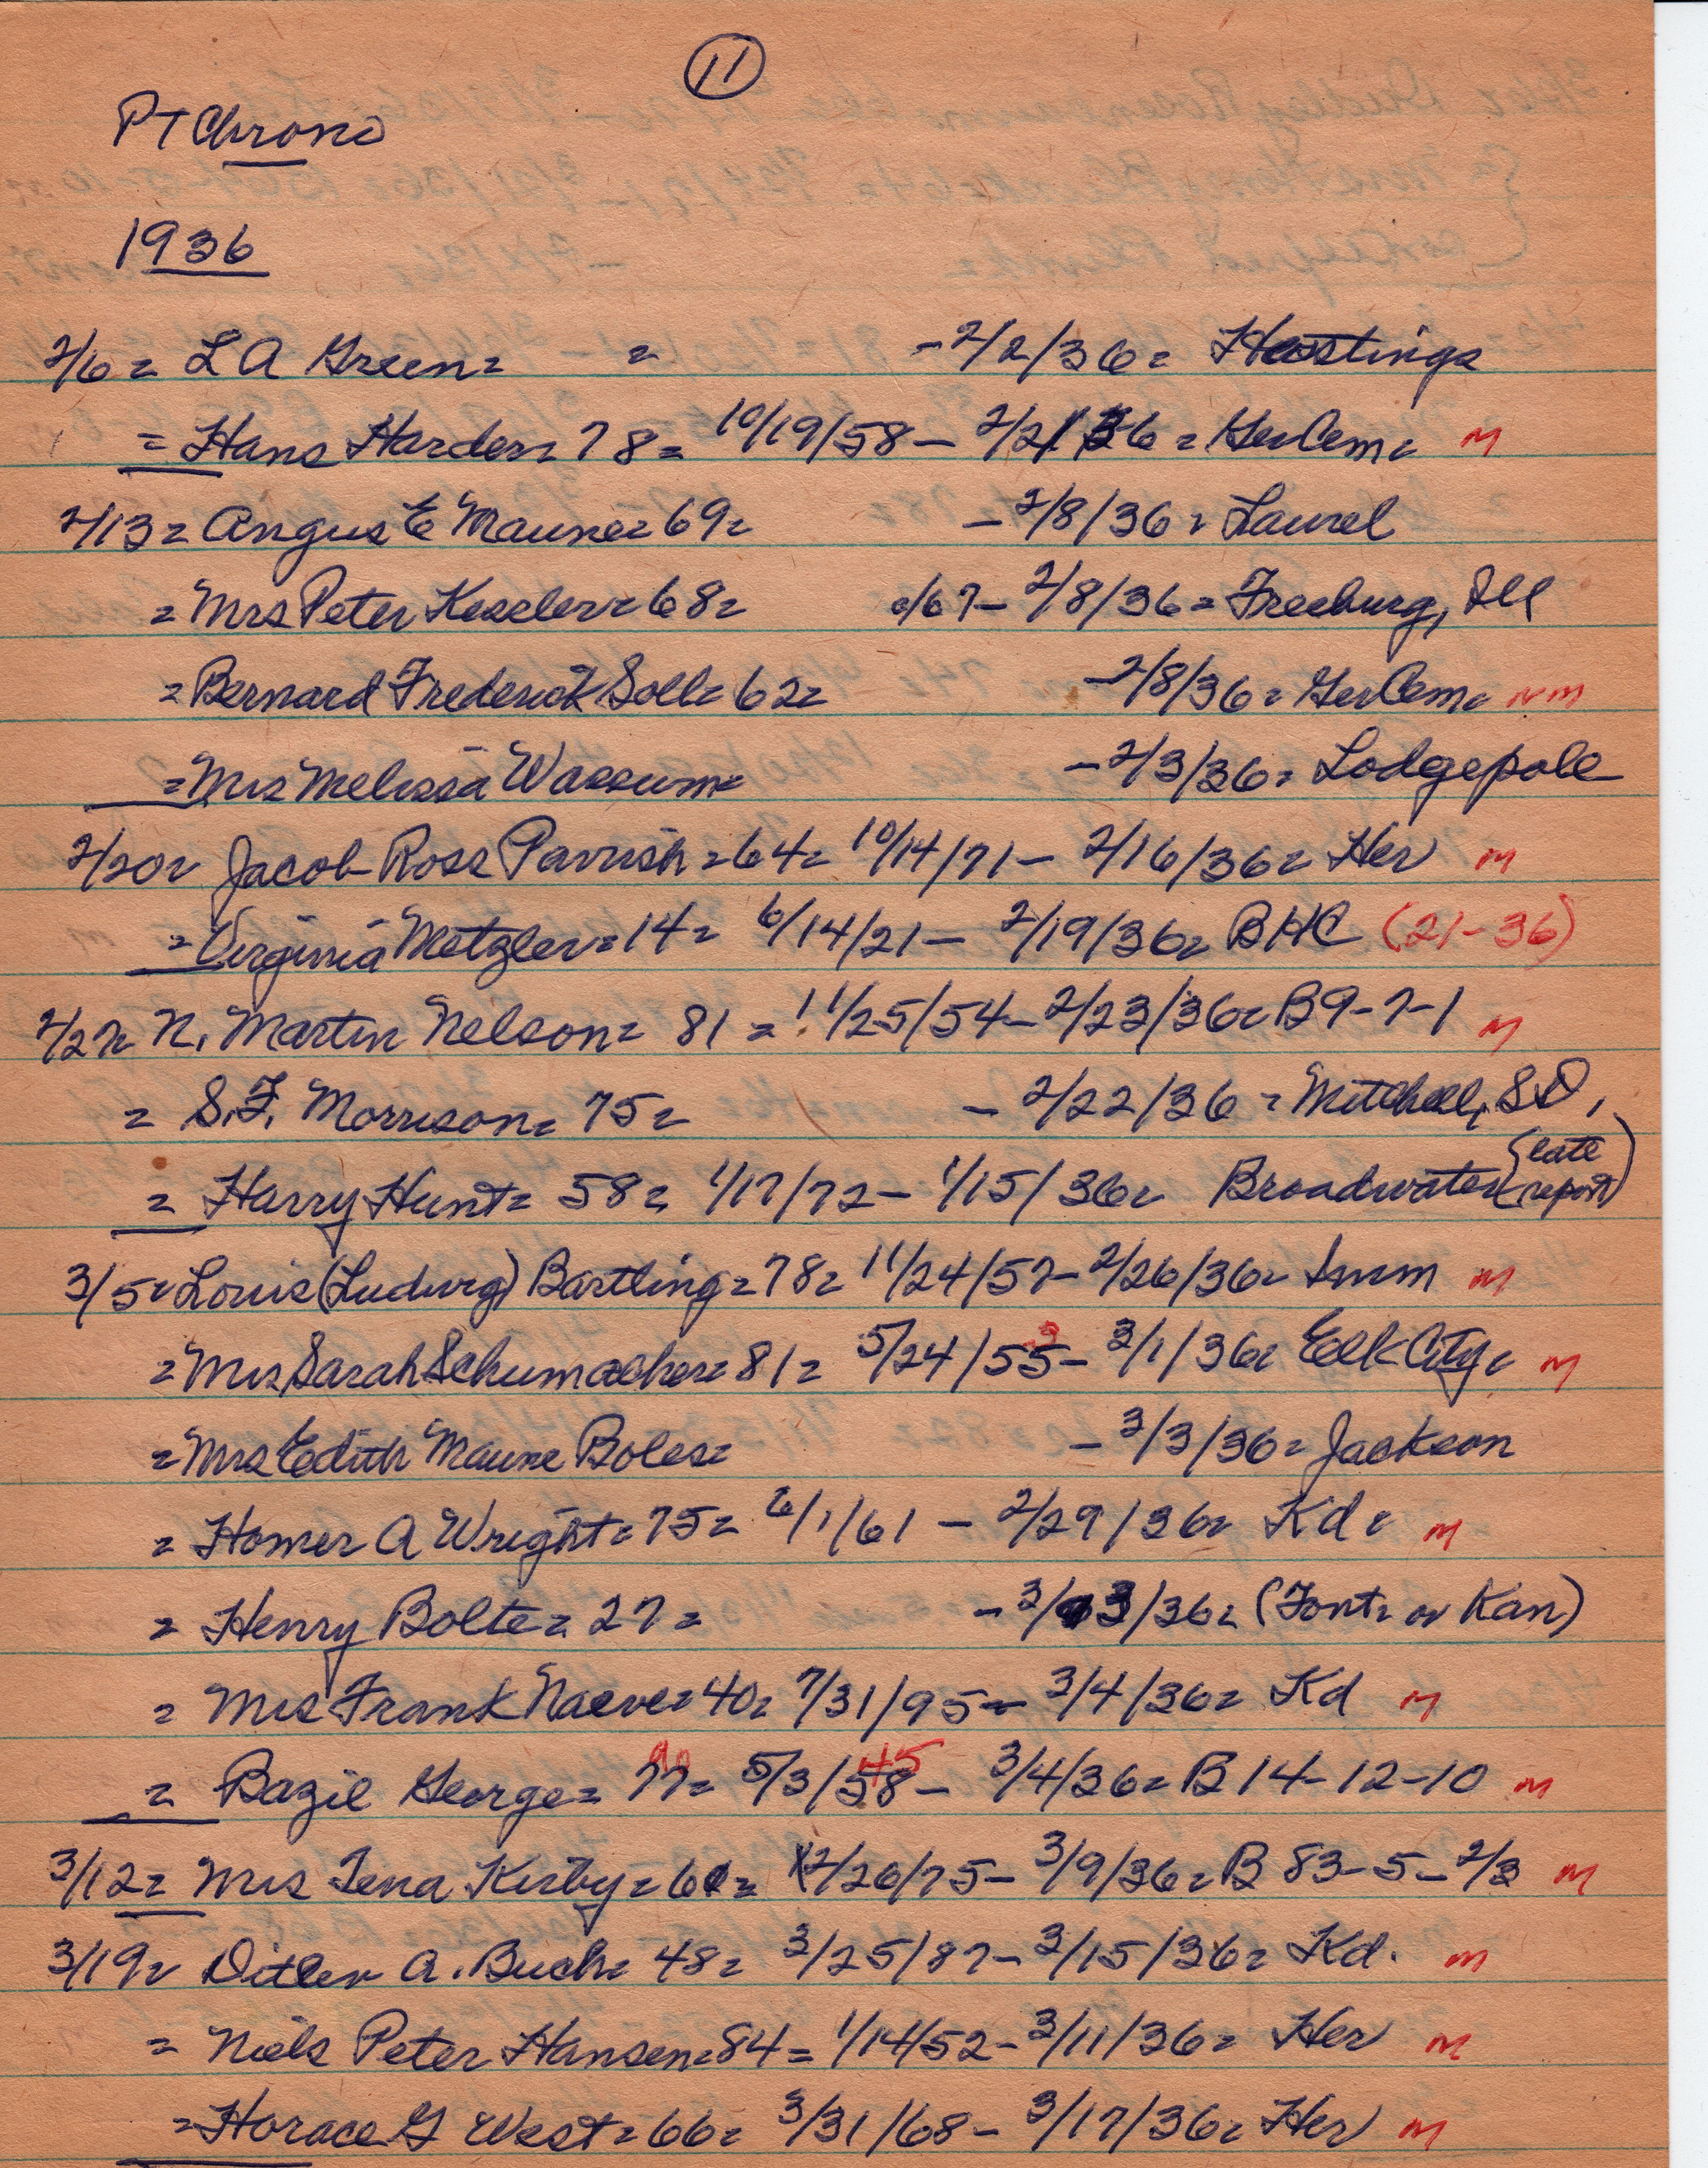 11
Pt Chrono
1936
2/6 = L A Green = = - 2/2/36 = Hastings
= Hans Harder = 78 = 10/19/58 - 2/2/36 = GerCem = M
2/13 = Angus E Maune = 69 = - 2/8/36 = Laurel
= Mrs Peter Kessler = 68 = c/67 - 2/8/36 = Freeburg, Ill
= Bernard Frederick Soll = 62 = - 2/8/36 = GerCem = NM
= Mrs Melissa Wassum = - 2/3/36 = Lodgepole
2/20 = Jacob Ross Parrish = 64 = 10/14/71 - 2/16/36 = Her M
= Virginia Metzler = 14 = 6/14/21 - 2/19/36 = BHC (21-36)
2/27 = N. Martin Nelson = 81 = 11/25/54 - 2/23/36 = B9-7-1 M
= S.F. Morrison = 75 = - 2/22/36 = Mitchell, SD,
= Harry Hunt = 58 = 1/17/72 - 1/15/36 = Broadwater (late report)
3/5 = Louis (Ludwig) Bartling = 78 = 11/24/57 - 2/26/36 = Imm M
= Mrs Sarah Schumacher = 81 = 5/24/55 3 - 3/1/36 = Elk City = M
= Mrs Edith Maune Boles = - 3/3/36 = Jackson
= Homer A Wright = 75 = 6/1/61 - 2/29/36 = Kd = M
= Henry Bolte = 27 = - 3/3/36 = (Font = or Kan)
= Mrs Frank Naeve = 40 = 7/31/95 - 3/4/36 = Kd M
= Bazil George = 77 90 = 5/3/58 45 - 3/4/36 = B 14-12-10 M
3/12 = Mrs Tena Kirby = 60 = 12/26/75 - 3/9/36 = B 83-5-2/3 M
3/19 = Ditlev A. Buch = 48 = 3/25/87 - 3/15/36 = Kd. M
= Niels Peter Hansen = 84 = 1/14/52 - 3/11/36 = Her M
= Horace G West = 66 = 3/31/68 - 3/17/36 = Her M